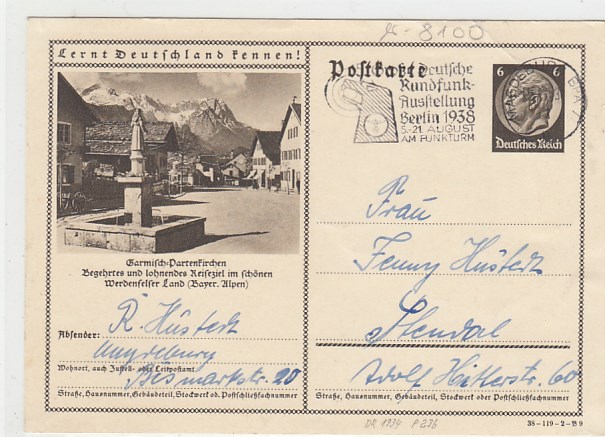 8100
Lernt Deutschland kennen!
Garmisch-Partenkirchen
Begehrtes und lohnendes Reiseziel im schönen
Werdenfelser Land (Bayer. Alpen)
Absender: R. Hüstedt
Magdeburg
Wohnort, auch Zustell- oder Leitpostamt
Bismarkstr. 20
Straße, Hausnummer, Gebäudeteil, Stockwerk od. Postschließfachnummer
Postkarte
Deutsche
Rundfunk-
Ausstellung
Berlin 1938
5.-21. AUGUST
AM FUNKTURM
6 6
Deutsches Reich
Frau
Fenny Hüstedt
Stendal
Adolf Hitlerstr. 60
Straße, Hausnummer, Gebäudeteil, Stockwerk oder Postschließfachnummer
38-119-2-B9
DR 1934 P 236